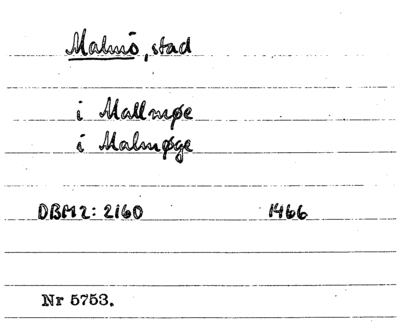 Malmö, stad
i Mallmøe
i Malmøge
DBM 2: 2160 1466
Nr 5753.